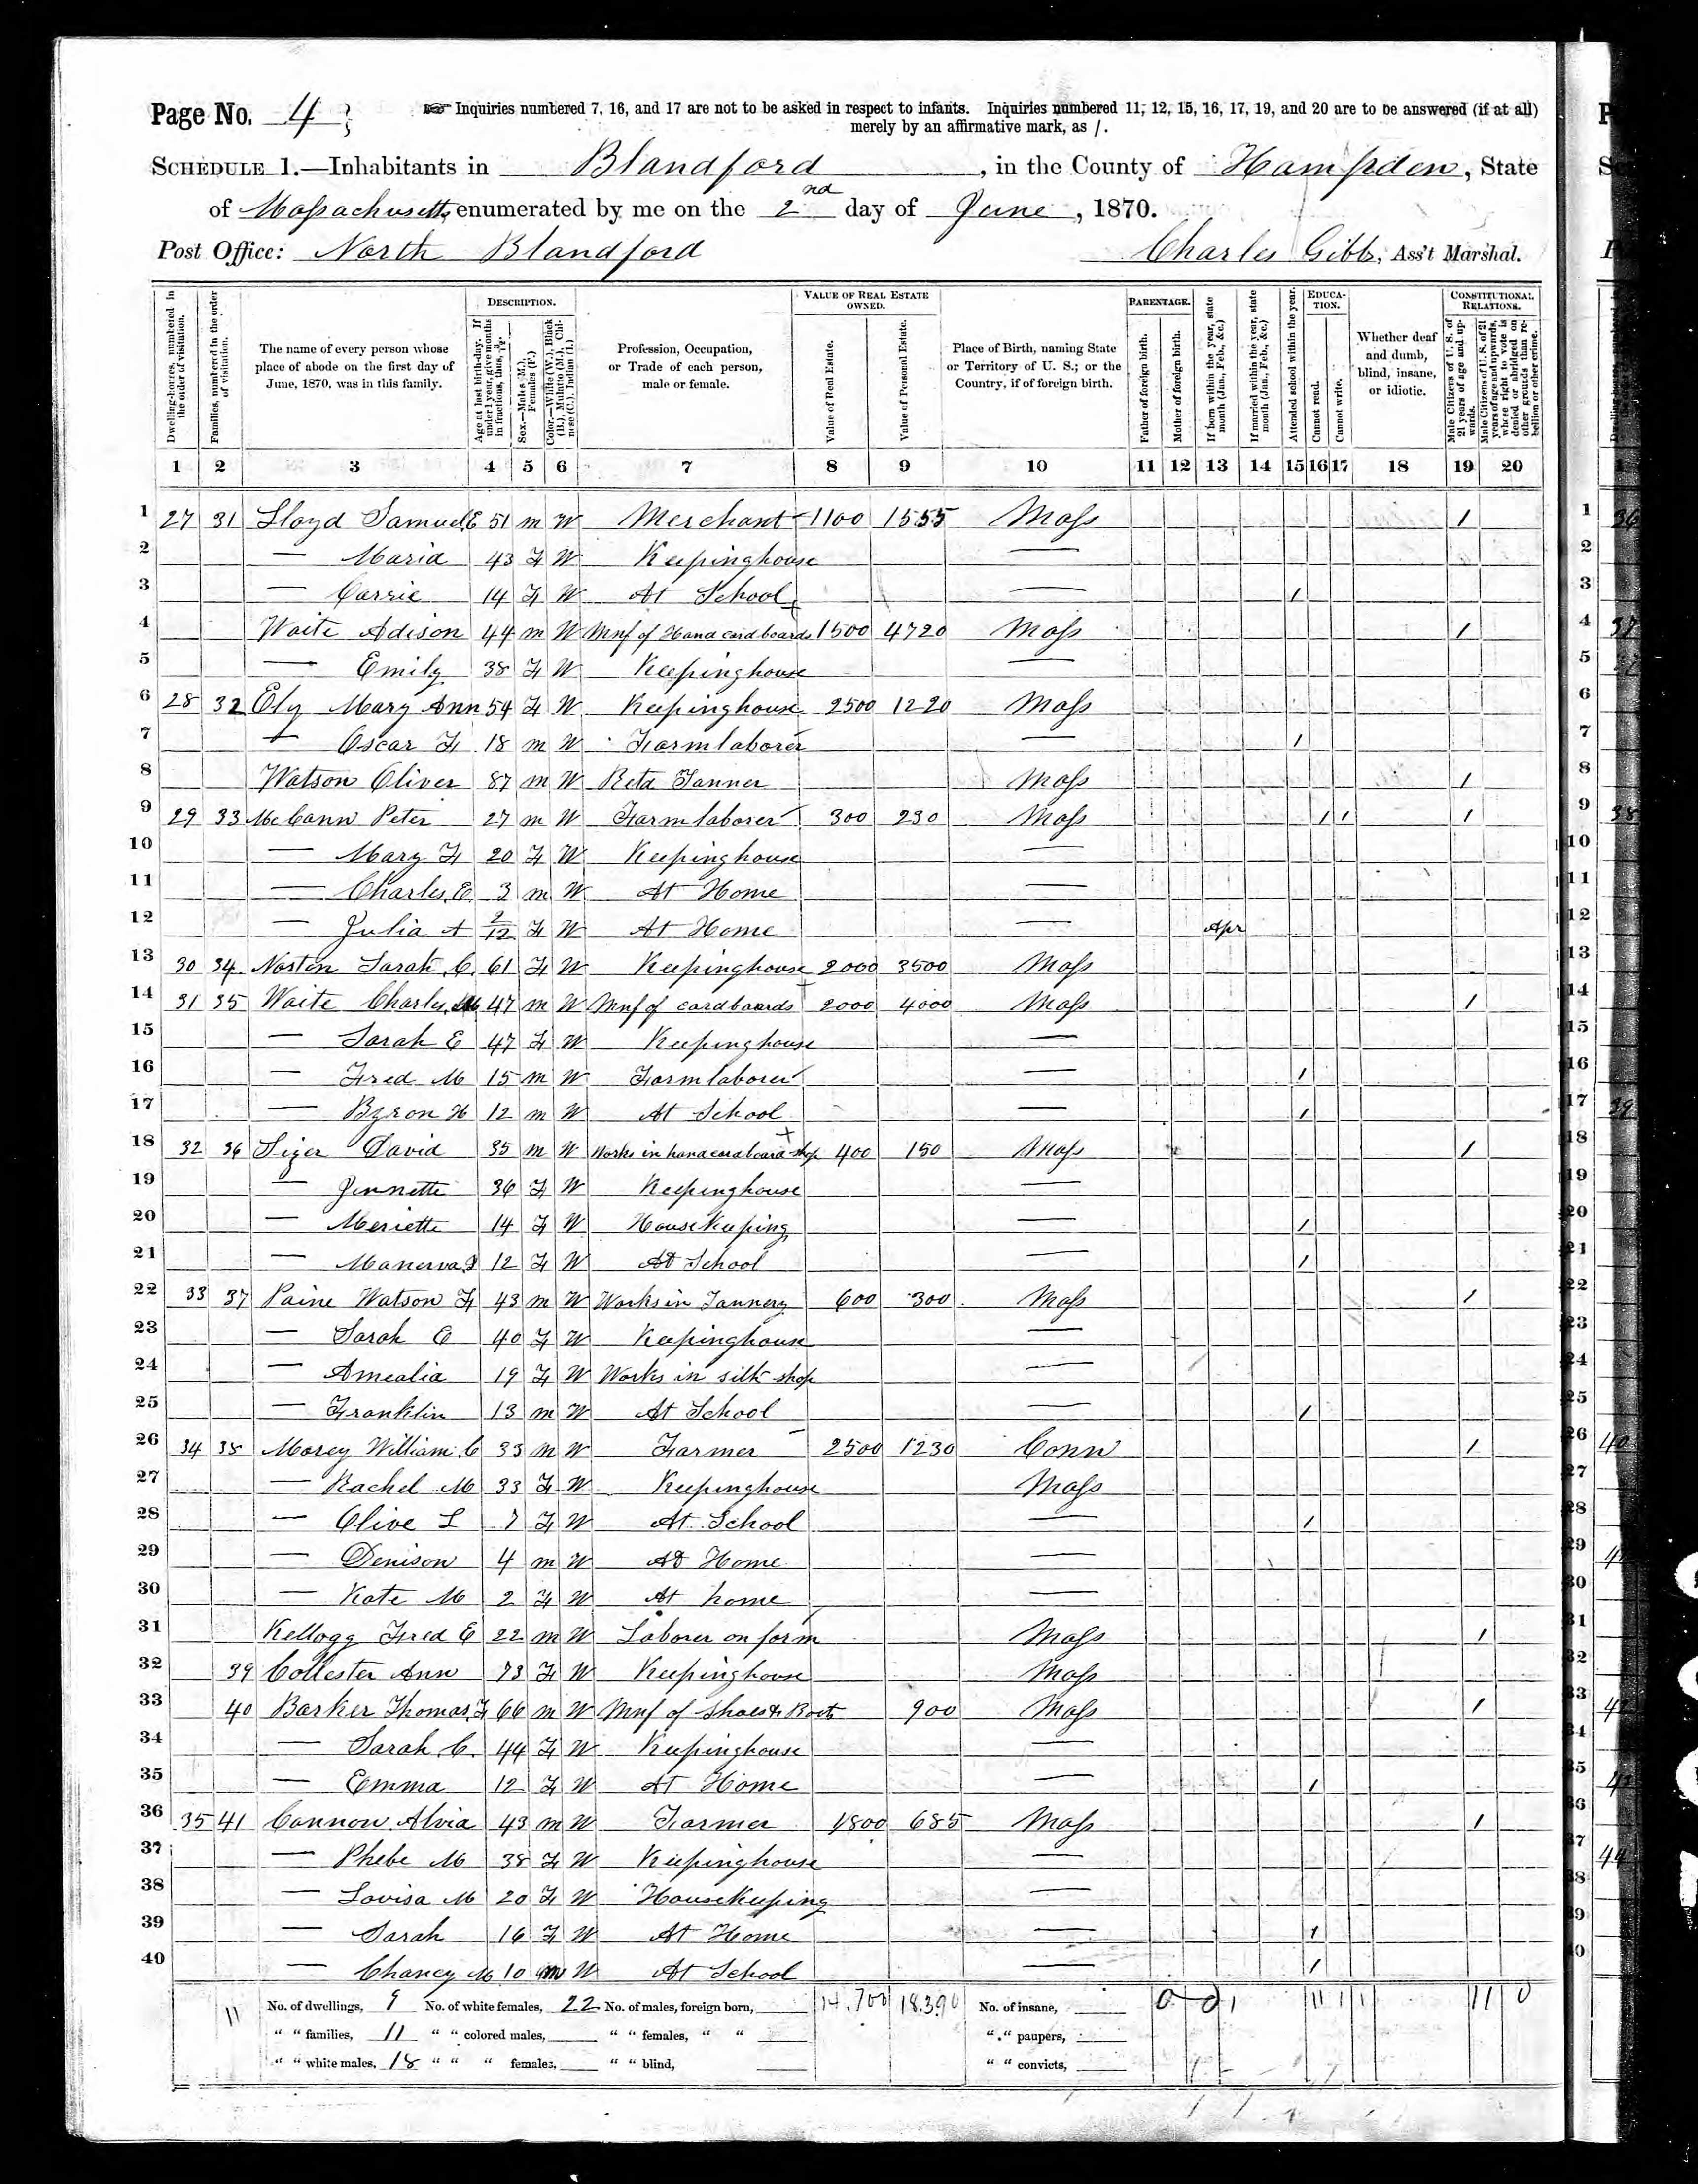 Page No. 4
☞ Inquiries numbered 7, 16, and 17 are not to be asked in respect to infants. Inquiries numbered 11, 12, 15, 16, 17, 19, and 20 are to be answered (if at all)
merely by an affirmative mark, as /.
SCHEDULE 1.—Inhabitants in Blandford, in the County of Hampden, State
of Massachusetts, enumerated by me on the 2nd day of June, 1870.
Post Office: North Blandford Charles Gibbs, Ass't Marshal.
Dwelling-houses, numbered in the order of visitation.
Families, numbered in the order of visitation.
The name of every person whose place of abode on the first day of June, 1870, was in this family.
DESCRIPTION.
Age at last birth-day. If under 1 year, give months in fractions, thus, 3/12.
Sex.—Males (M.), Females (F.)
Color.—White (W.), Black (B.), Mulatto (M.), Chinese (C.), Indian (I.)
Profession, Occupation, or Trade of each person, male or female.
VALUE OF REAL ESTATE OWNED.
Value of Real Estate.
Value of Personal Estate.
Place of Birth, naming State or Territory of U. S.; or the Country, if of foreign birth.
PARENTAGE.
Father of foreign birth.
Mother of foreign birth.
If born within the year, state month (Jan., Feb., &c.)
If married within the year, state month (Jan., Feb., &c.)
Attended school within the year.
EDUCATION.
Cannot read.
Cannot write.
Whether deaf and dumb, blind, insane, or idiotic.
CONSTITUTIONAL RELATIONS.
Male Citizens of U. S. of 21 years of age and upwards.
Male Citizens of U. S. of 21 years of age and upwards, whose right to vote is denied or abridged on other grounds than rebellion or other crime.
1 2 3 4 5 6 7 8 9 10 11 12 13 14 15 16 17 18 19 20
1 27 31 Lloyd Samuel E 51 m W Merchant 1100 1555 Mass / 1
2 — Maria 43 F W Keepinghouse — 2
3 — Carrie 14 F W At School — / 3
4 Waite Adison 44 m W Mnf of Hand cardboards 1500 4720 Mass / 4
5 — Emily 38 F W Keepinghouse — 5
6 28 32 Ely Mary Ann 54 F W Keepinghouse 2500 1220 Mass 6
7 — Oscar F 18 m W Farm laborer — / 7
8 Watson Oliver 87 m W Retd Tanner Mass / 8
9 29 33 McCann Peter 27 m W Farm laborer 300 230 Mass / / / 9
10 — Mary F 20 F W Keepinghouse — 10
11 — Charles E 3 m W At Home — 11
12 — Julia A 2/12 F W At Home — Apr 12
13 30 34 Norton Sarah C. 61 F W Keepinghouse 2000 3500 Mass 13
14 31 35 Waite Charles 47 m W Mnf of cardboards 2000 4000 Mass / 14
15 — Sarah E 47 F W Keepinghouse — 15
16 — Fred M 15 m W Farm laborer — / 16
17 — Byron H 12 m W At School — / 17
18 32 36 Sizer David 35 m W Works in hand cardboard shop 400 150 Mass / 18
19 — Jennette 36 F W Keepinghouse — 19
20 — Meriette 14 F W HouseKeeping — / 20
21 — Manerva 12 F W At School — / 21
22 33 37 Paine Watson F 43 m W Works in Tannery 600 300 Mass / 22
23 — Sarah E 40 F W Keepinghouse — 23
24 — Amealia 19 F W Works in silk shop — 24
25 — Franklin 13 m W At School — / 25
26 34 38 Morey William C 33 m W Farmer 2500 1230 Conn / 26
27 — Rachel M 33 F W Keepinghouse Mass 27
28 — Olive L 7 F W At School — / 28
29 — Denison 4 m W At Home — 29
30 — Kate M 2 F W At home — 30
31 Kellogg Fred E 22 m W Laborer on farm Mass / 31
32 39 Collester Ann 73 F W Keepinghouse Mass 32
33 40 Barker Thomas F 66 m W Mnf of Shoes & Boots 900 Mass / 33
34 — Sarah C. 44 F W Keepinghouse — 34
35 — Emma 12 F W At Home — / 35
36 35 41 Cannon Alvia 43 m W Farmer 1800 685 Mass / 36
37 — Phebe M 38 F W Keepinghouse — 37
38 — Lovisa M 20 F W HouseKeeping — 38
39 — Sarah 16 F W At Home — / 39
40 — Chancy M 10 m W At School — / 40
11 No. of dwellings, 9 No. of white females, 22 No. of males, foreign born, 14,700 18.390 No. of insane, 0 0 1 11 1 1 11 0
" " families, 11 " " colored males, " " females, " " " " paupers,
" " white males, 18 " " " females, " " blind, " " convicts,